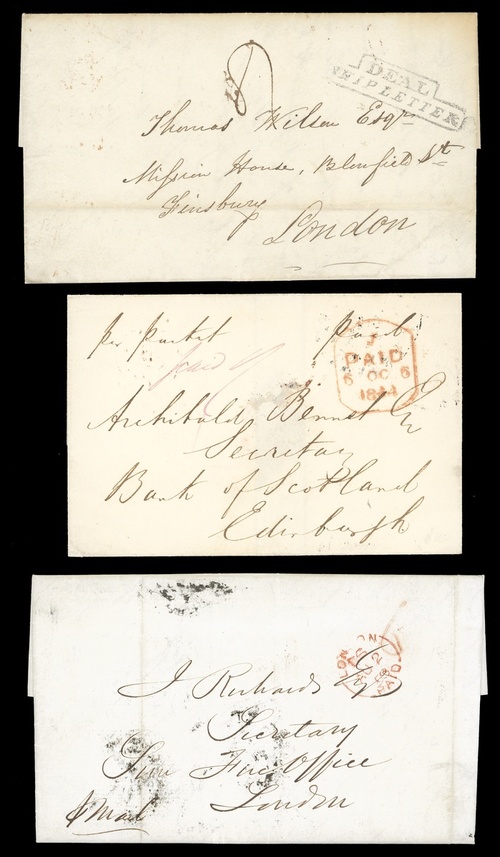 8
DEAL
SHIP LETTER
Thomas Wilson Esqr
Mission House, Blomfield St
Finsbury
London
Per Packet
Paid
paid
PAID
6 OC 6
1844
Archibald Bennet Esq
Secretary
Bank of Scotland
Edinburgh
LONDON
PAID
J Richards Esq
Secretary
Sun Fire Office
London
Mail